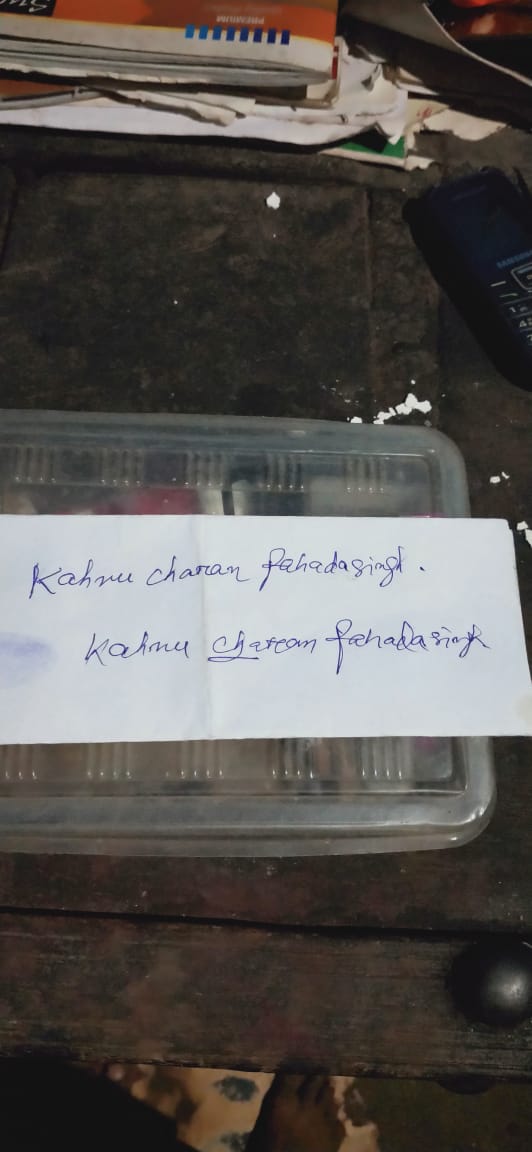 PREMIUM
SAMSUNG
Kahnu charan Pahadasingh.
Kahnu Charan Pahadasingh